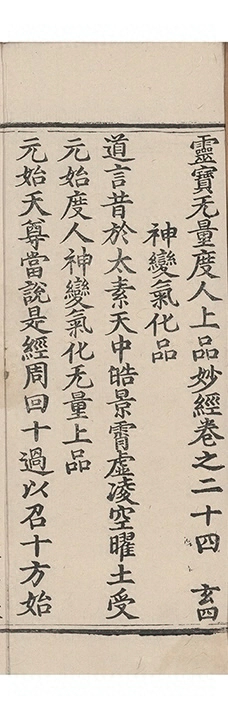 靈寶无量度人上品妙經卷之二十四 玄四
神變氣化品
道言昔於太素天中皓景霄虛凌空曜土受
元始度人神變氣化无量上品
元始天尊當說是經周回十過以召十方始